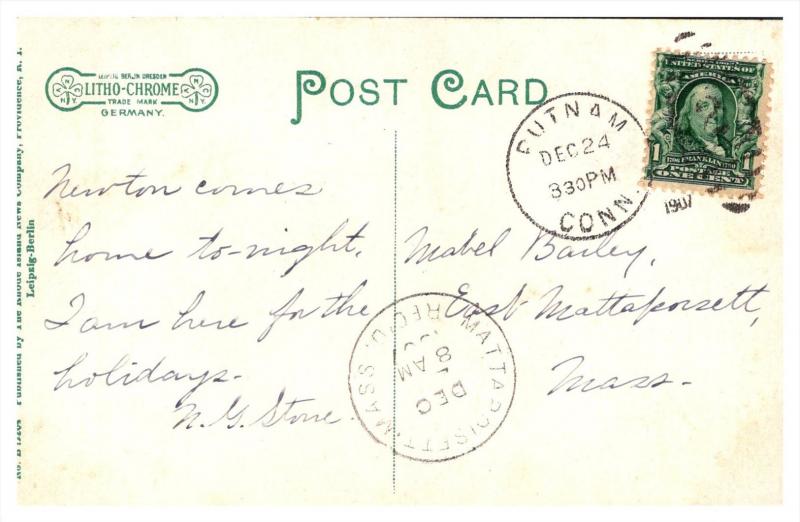 LEIPZIG BERLIN DRESDEN
LITHO-CHROME
TRADE MARK
GERMANY.
N Y
N Y
POST CARD
PUTNAM
DEC 24
330PM
CONN.
1907
SERIES 1902
UNITED STATES OF
AMERICA
1706 FRANKLIN 1790
1 POSTAGE 1
ONE CENT
Newton comes
home to-night.
I am here for the
holidays-
N. G. Stone.
Mabel Bailey,
East Mattapoisett,
Mass-
MATTAPOISETT MASS.
REC'D.
DEC
8 AM
Published by The Rhode Island News Company, Providence, R. I.
Leipzig-Berlin